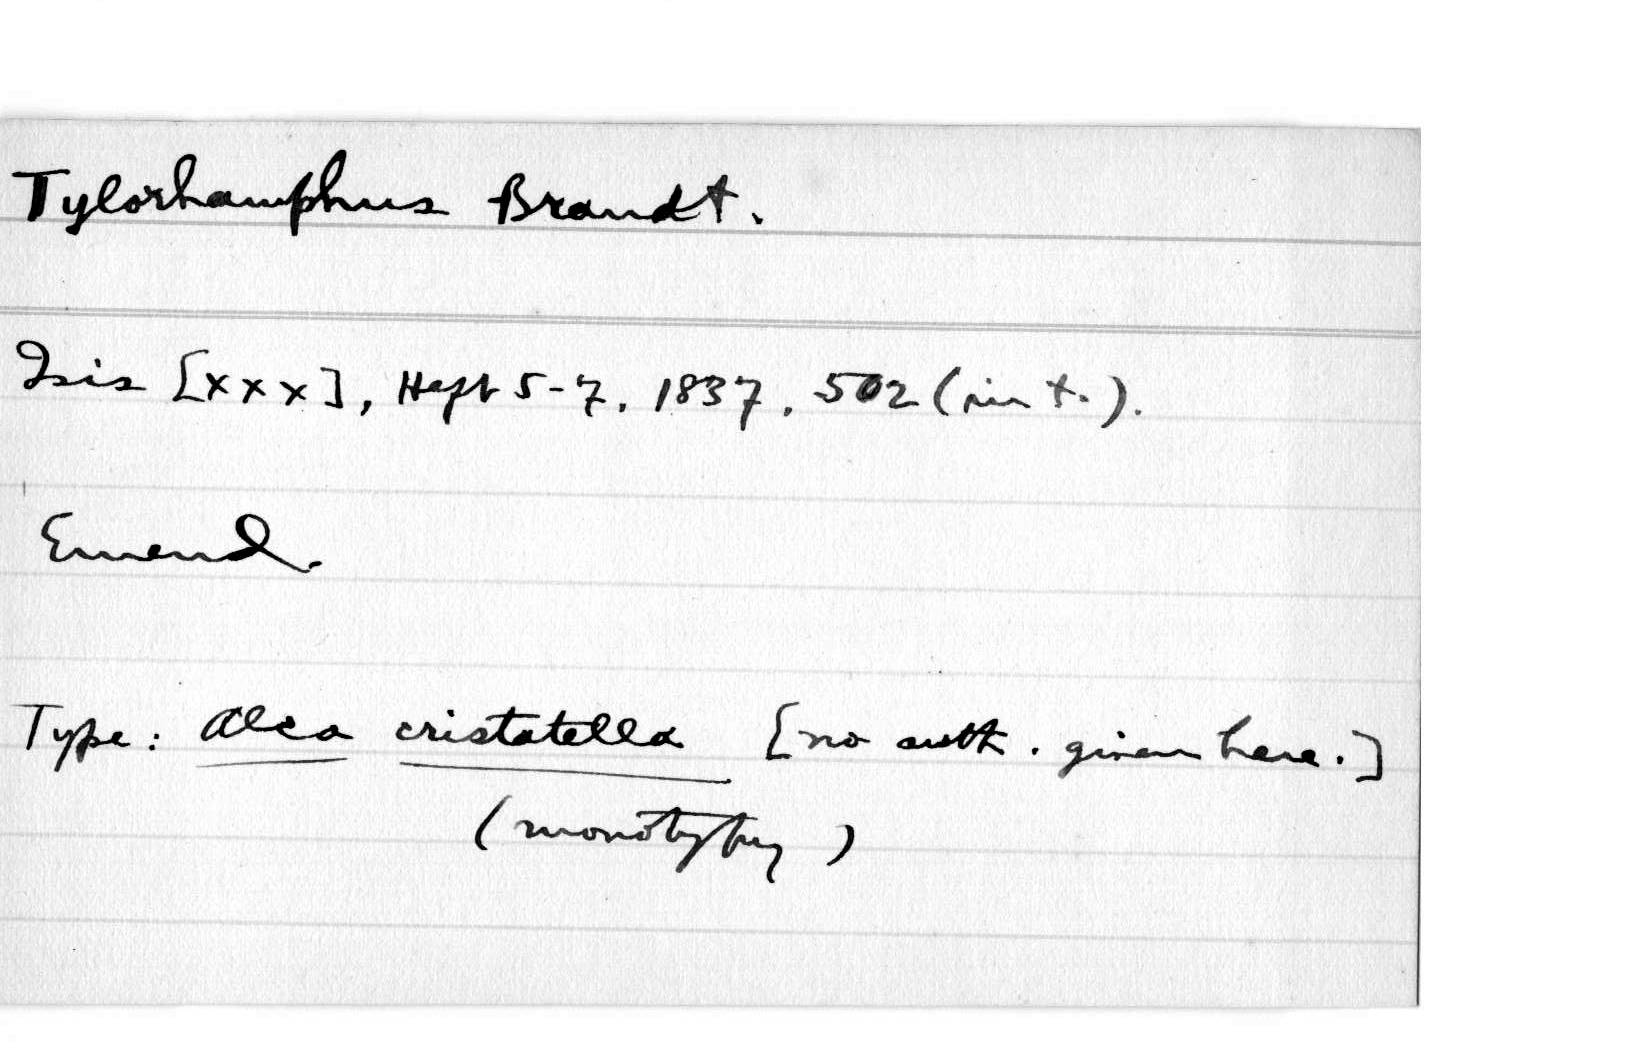 Tylorhamphus Brandt.
Isis [xxx], Heft 5-7, 1837, 502 (in t.).
Emend.
Type: Alca cristatella [no auth. given here.]
(monotypy)